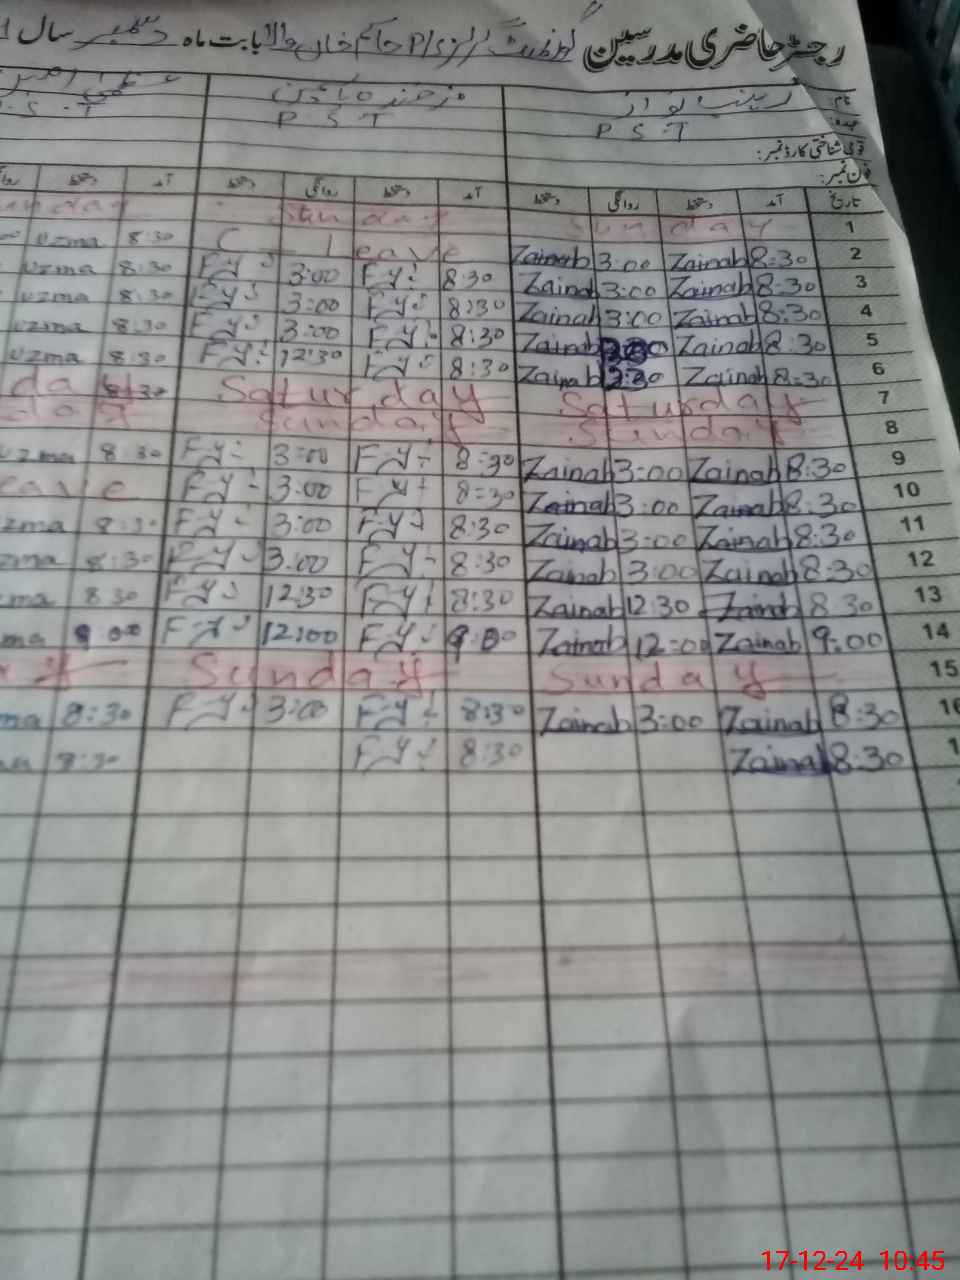 رجسٹر حاضری مدرسین گورنمنٹ گرلز P/S حاکم خان والا بابت ماہ دسمبر سال
نام: زینب نواز
عہدہ: P S T P S T P.S.T
قومی شناختی کارڈ نمبر:
فون نمبر:
تاریخ آمد دستخط روانگی دستخط آمد دستخط روانگی دستخط آمد دستخط
1 Sunday Sunday
2 8:30 Zainab 3:00 Zainab C leave 8:30 uzma
3 8:30 Zainab 3:00 Zainab 8:30 F-y 3:00 F-y 8:30 uzma
4 8:30 Zainab 3:00 Zainab 8:30 F-y 3:00 F-y 8:30 uzma
5 8:30 Zainab Zainab 8:30 F-y 3:00 F-y 8:30 uzma
6 8:30 Zainab Zainab 8:30 F-y 12:30 F-y 8:30 uzma
7 Saturday Saturday day
8 Sunday Sunday
9 8:30 Zainab 3:00 Zainab 8:30 F-y 3:00 F-y 8:30 zma
10 8:30 Zainab 3:00 Zainab 8:30 F-y 3:00 F-y eave
11 8:30 Zainab 3:00 Zainab 8:30 F-y 3:00 F-y 8:30 zma
12 8:30 Zainab 3:00 Zainab 8:30 F-y 3:00 F-y 8:30 zma
13 8:30 Zainab 12:30 Zainab 8:30 F-y 12:30 F-y 8:30 ma
14 9:00 Zainab 12:00 Zainab 9:00 F-y 12:00 F-y 9:00 ma
15 Sunday Sunday y
16 8:30 Zainab 3:00 Zainab 8:30 F-y 3:00 F-y 8:30 ma
1 8:30 Zainab 8:30 F-y 8:30
17-12-24 10:45